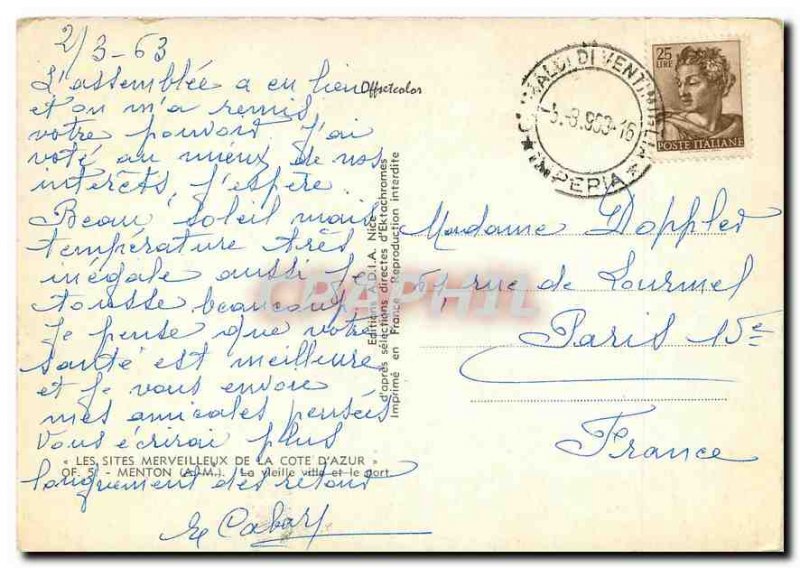 2/3-63
L'assemblée a eu lieu
et on m'a remis
votre pouvoir. J'ai
voté au mieux de nos
intérêts, j'espère.
Beau soleil mais
température très
inégale aussi je
tousse beaucoup.
Je pense que votre
santé est meilleure
et je vous envoie
mes amicales pensées
Vous écrirai plus
longuement dès retour
Offsetcolor
Editions A.D.I.A. Nice
d'après sélections directes d'Ektachromes
Imprimé en France - Reproduction interdite
« LES SITES MERVEILLEUX DE LA COTE D'AZUR »
OF. 5 - MENTON (A.-M.). La vieille ville et le port
GRIMALDI DI VENTIMIGLIA
IMPERIA
25
LIRE
POSTE ITALIANE
Madame Doppler
51 rue de Lourmel
Paris 15e
France
CRAPHIL